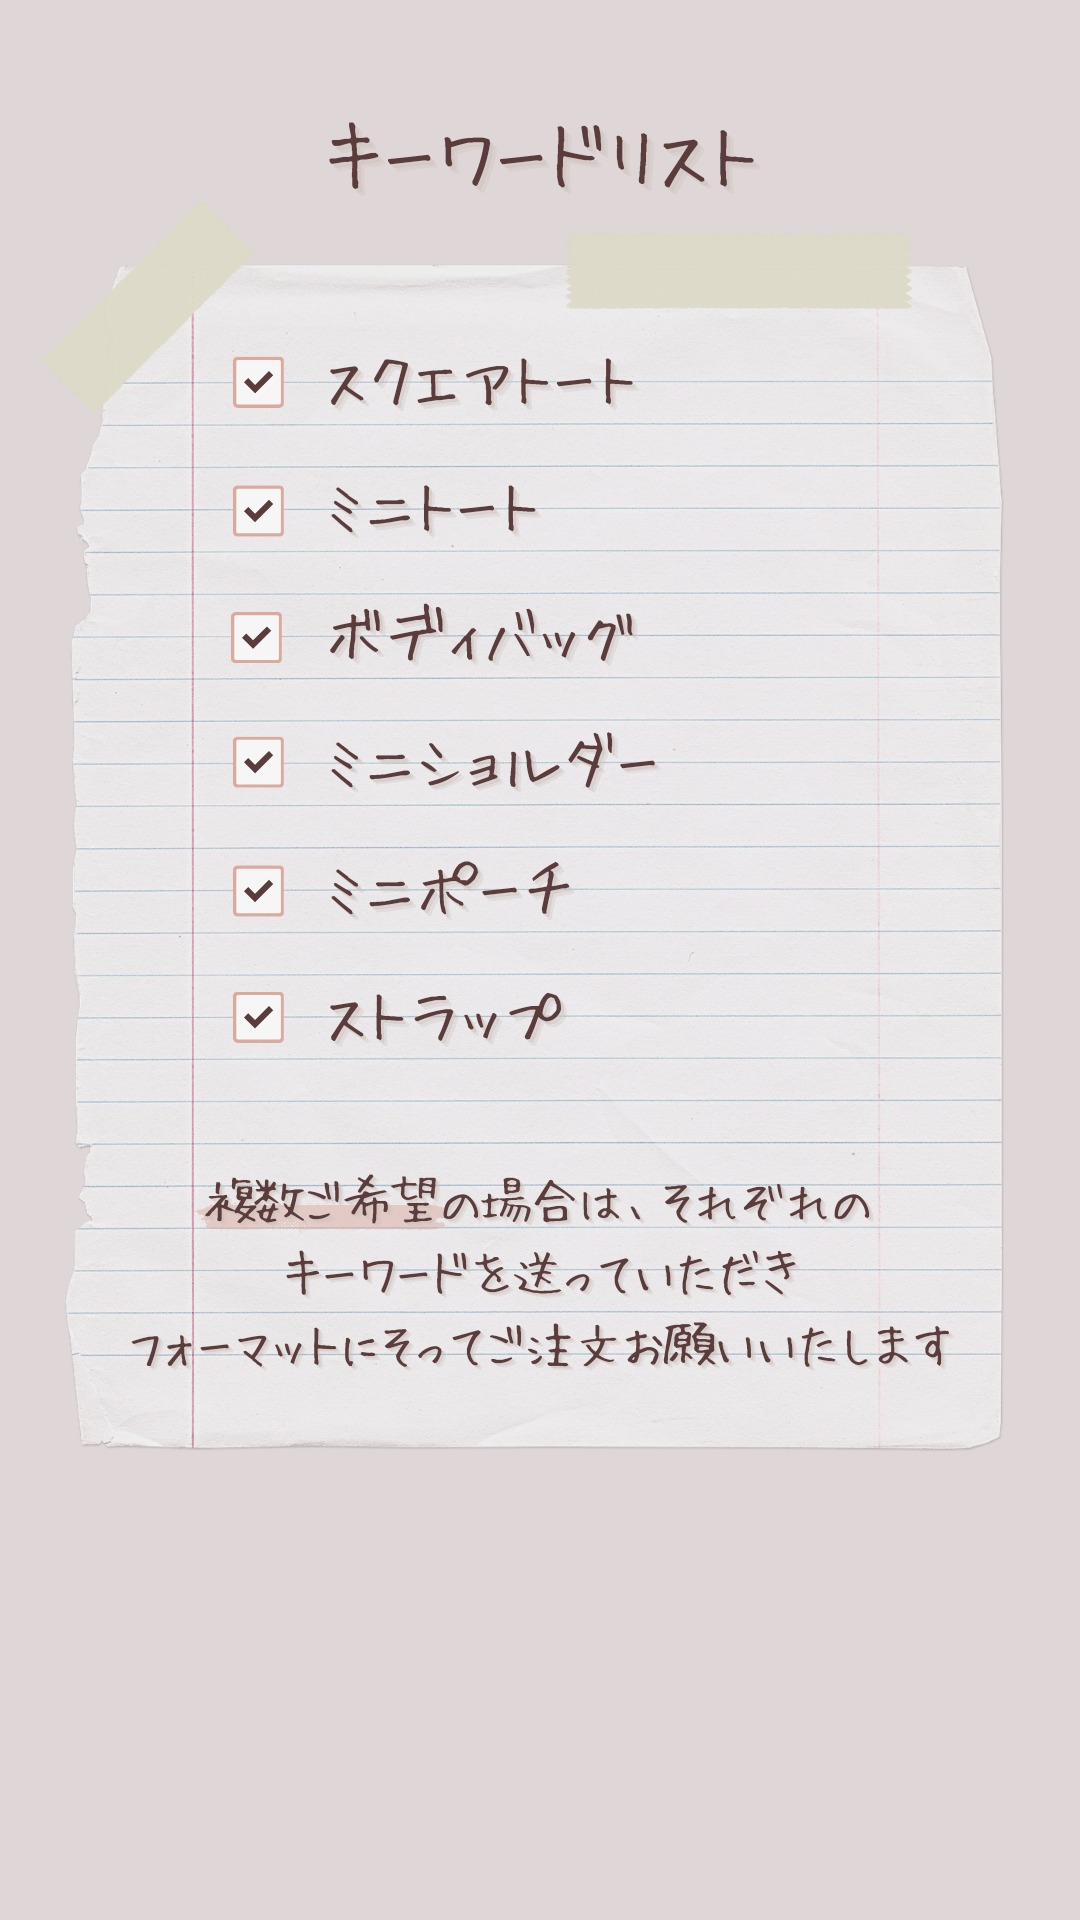 キーワードリスト
スクエアトート
ミニトート
ボディバッグ
ミニショルダー
ミニポーチ
ストラップ
複数ご希望の場合は、それぞれの
キーワードを送っていただき
フォーマットにそってご注文お願いいたします